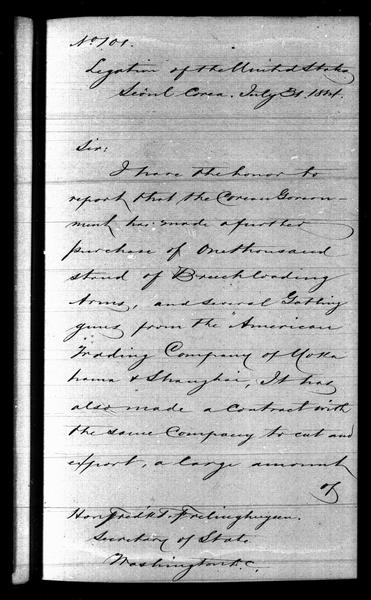 No. 101.
Legation of the United States
Seoul Corea. July 31. 1884.
Sir:
I have the honor to
report that the Corean Govern-
ment has made a further
purchase of One thousand
stand of Breechloading
Arms, and several Gatling
guns from the "American
Trading Company of Yoka
hama & Shanghai, It has
also made a contract with
the same Company to cut and
export, a large amount
of
Hon. Fredk. T. Frelinghuysen.
Secretary of State
Washington D.C.